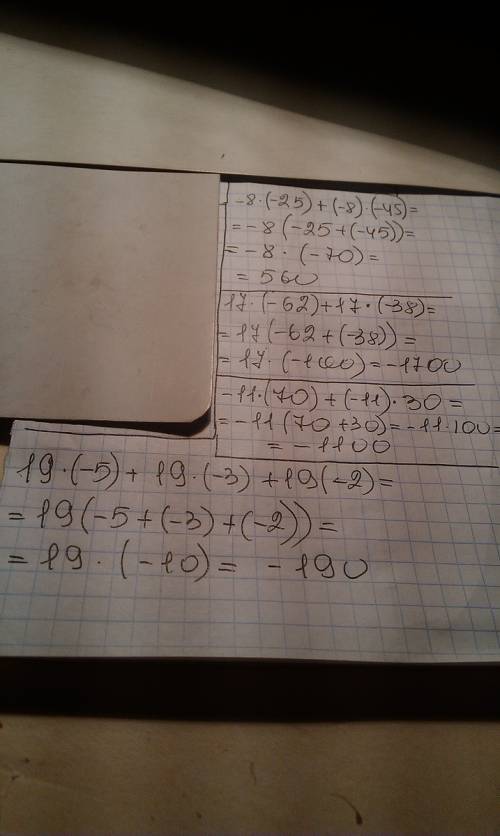 -8·(-25)+(-8)·(-45)=
=-8(-25+(-45))=
=-8·(-70)=
=560
17·(-62)+17·(-38)=
=17(-62+(-38))=
=17·(-100)=-1700
-11·(70)+(-11)·30=
=-11(70+30)=-11·100=
=-1100
19·(-5)+19·(-3)+19(-2)=
=19(-5+(-3)+(-2))=
=19·(-10)= -190